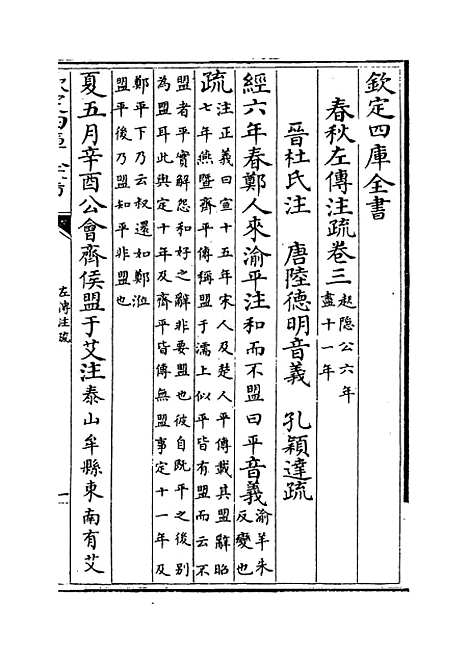 欽定四庫全書
春秋左傳注疏卷三起隱公六年
盡十一年
晉杜氏注　唐陸德明音義　孔穎達疏
經六年春鄭人來渝平注和而不盟曰平音義渝羊朱
反變也
疏注正義曰宣十五年宋人及楚人平傳載其盟辭昭
七年燕暨齊平傳稱盟于濡上似平皆有盟而云不
盟者平實解怨和好之辭非要盟也彼自既平之後别
為盟耳此與定十年及齊平皆傳無盟事定十一年及
鄭平下乃云叔還如鄭涖
盟平後乃盟知平非盟也
夏五月辛酉公會齊侯盟于艾注泰山牟縣東南有艾
左傳注疏
一